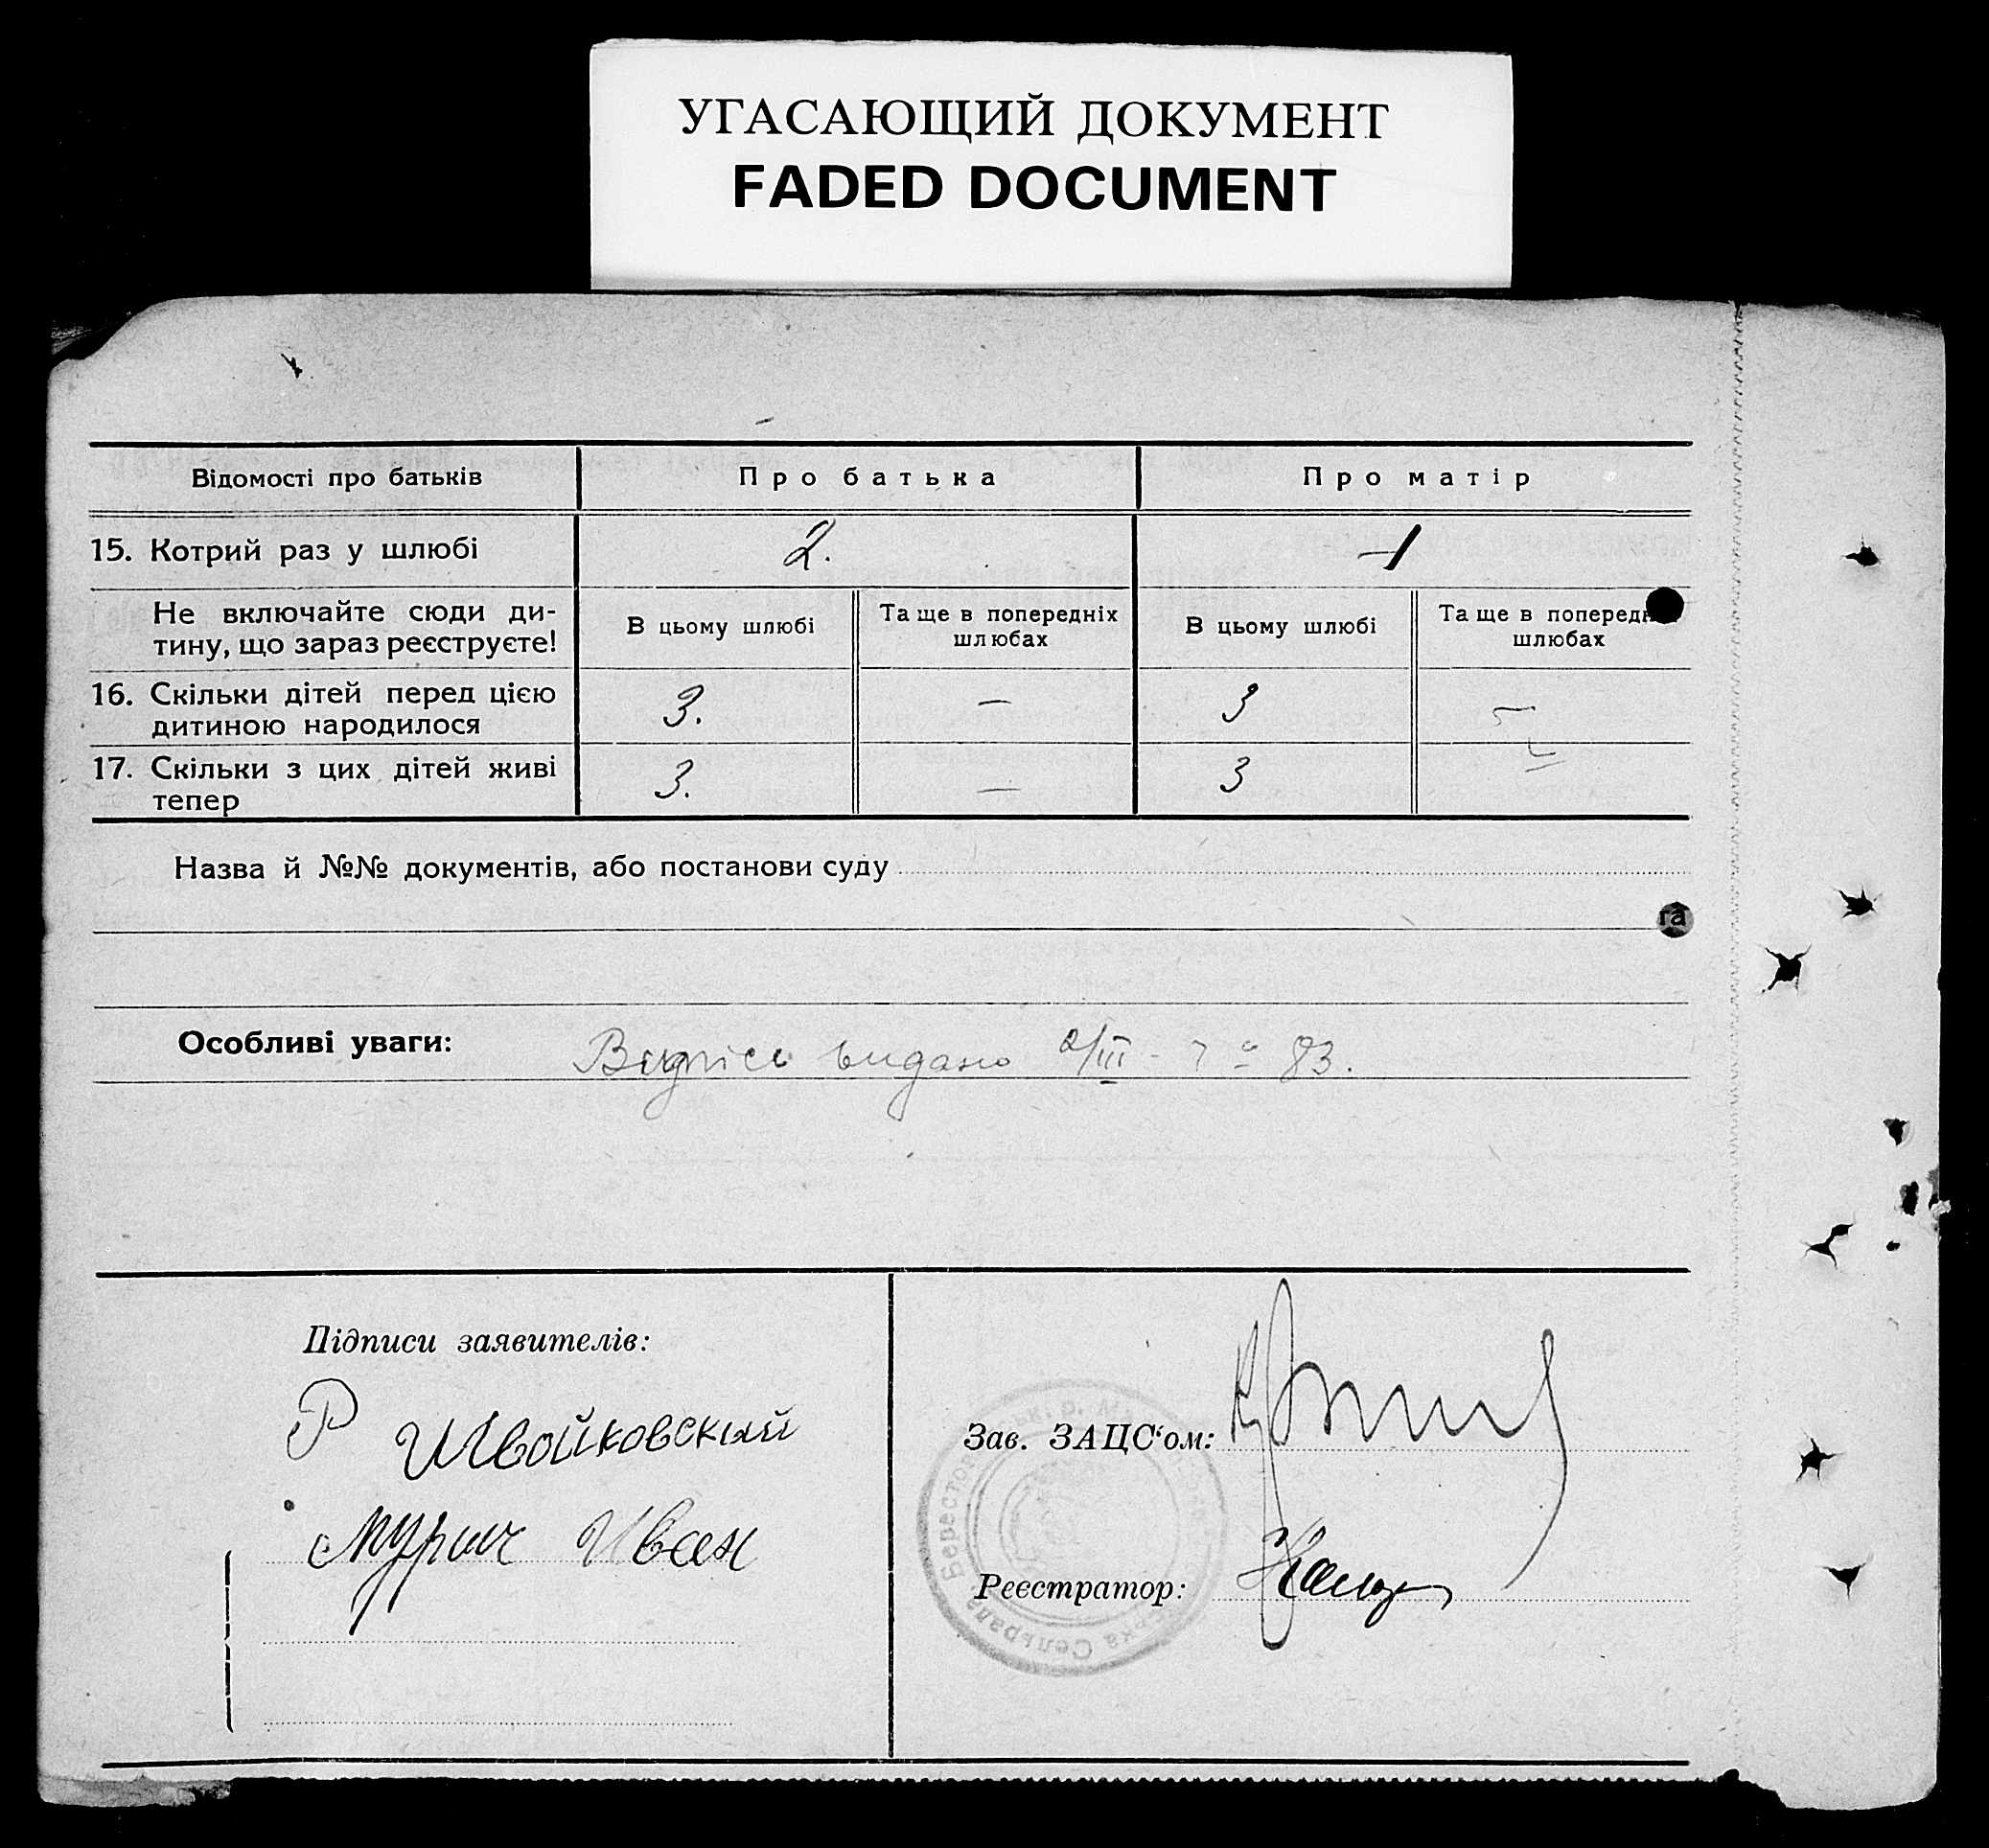 УГАСАЮЩИЙ ДОКУМЕНТ
FADED DOCUMENT
Відомості про батьків Про батька Про матір
15. Котрий раз у шлюбі 2. 1
Не включайте сюди ди-
тину, що зараз реєструєте!
В цьому шлюбі
Та ще в попередніх
шлюбах
В цьому шлюбі
Та ще в
шлюбах
16. Скільки дітей перед цією
дитиною народилося
3. — 3 —
17. Скільки з цих дітей живі
тепер
3. — 3 —
Назва й №№ документів, або постанови суду
га
Особливі уваги: видано 2/III - 7 № 83.
Підписи заявителів:
Р Швойковский
Мурич Иван
Зав. ЗАЦС‘ом:
Реєстратор:
Сельрада